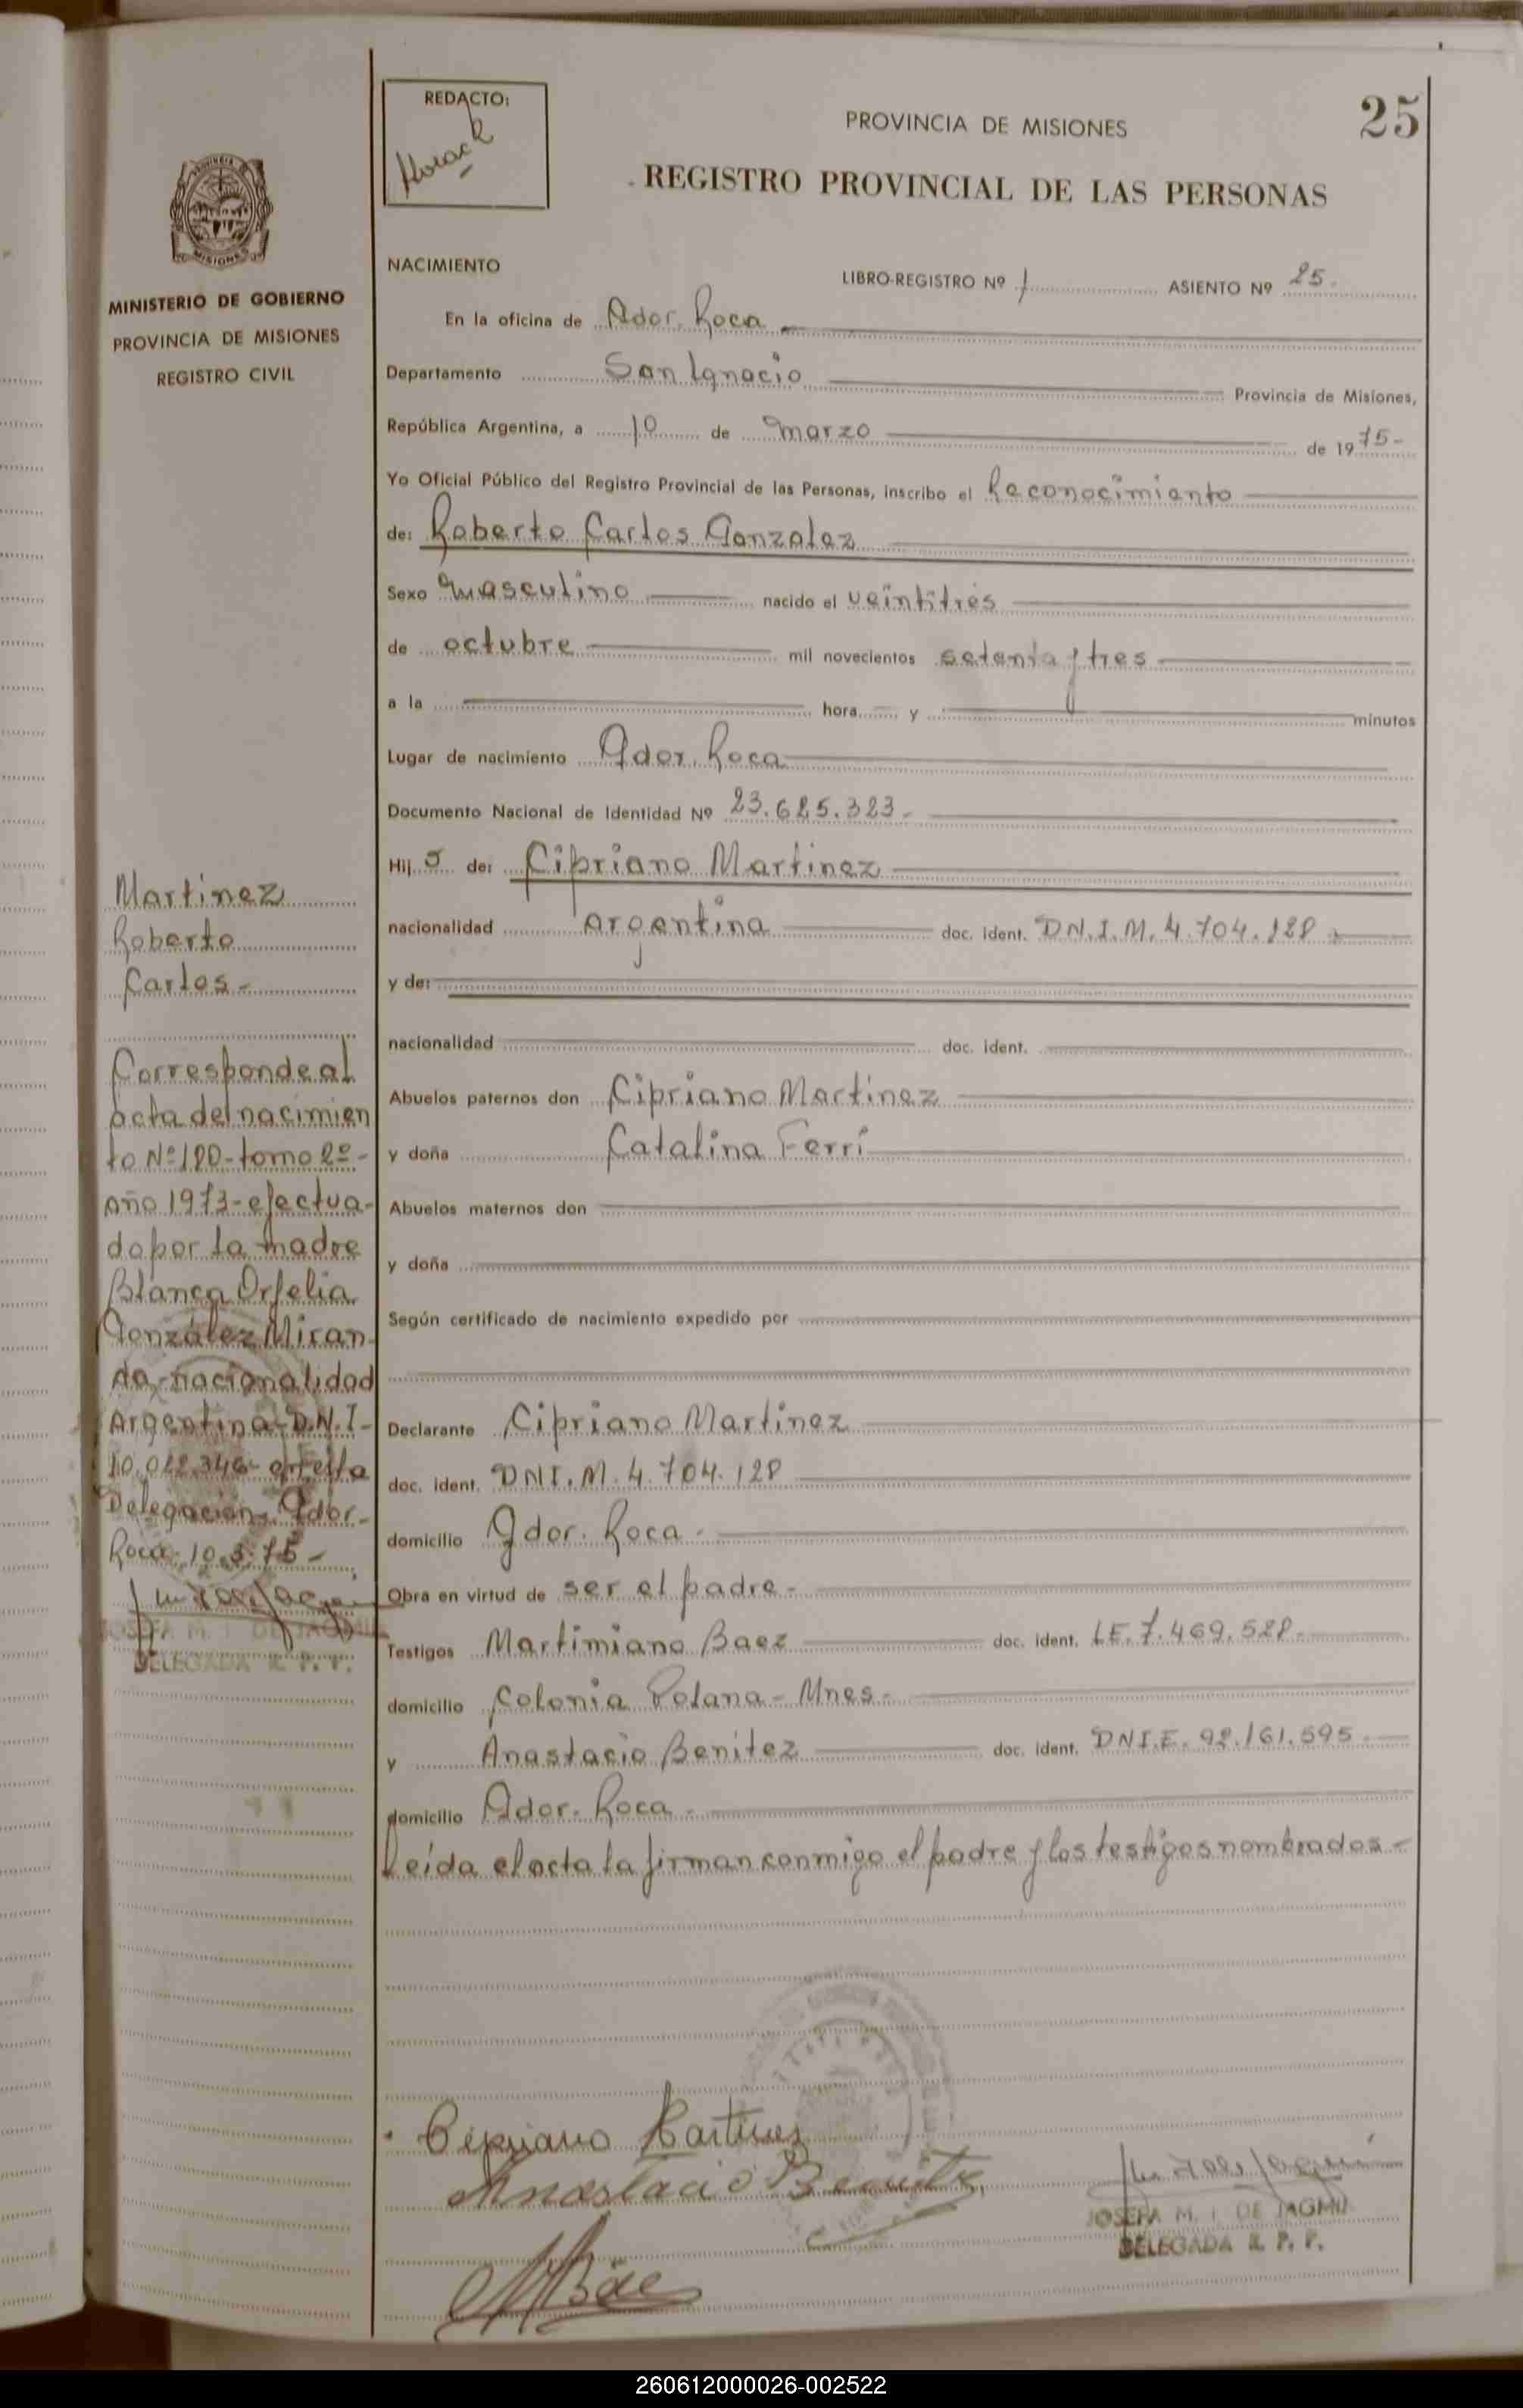 25
REDACTO:
PROVINCIA DE MISIONES
REGISTRO PROVINCIAL DE LAS PERSONAS
MINISTERIO DE GOBIERNO
PROVINCIA DE MISIONES
REGISTRO CIVIL
NACIMIENTO
LIBRO-REGISTRO Nº 1 ASIENTO Nº 25.
En la oficina de Gdor. Roca
Departamento San Ignacio Provincia de Misiones,
República Argentina, a 10 de marzo de 1975-
Yo Oficial Público del Registro Provincial de las Personas, inscribo el Reconocimiento
de: Roberto Carlos Gonzalez
Sexo masculino nacido el veintitres
de octubre mil novecientos setenta y tres
a la hora y minutos
Lugar de nacimiento Gdor. Roca
Documento Nacional de Identidad Nº 23.625.323-
Hij o de: Cipriano Martinez
nacionalidad Argentina doc. ident. D.N.I.M. 4.704.128
y de:
nacionalidad doc. ident.
Abuelos paternos don Cipriano Martinez
y doña Catalina Ferri
Abuelos maternos don
y doña
Según certificado de nacimiento expedido por
Declarante Cipriano Martinez
doc. ident. DNI.M. 4.704.128
domicilio Gdor. Roca-
Obra en virtud de ser el padre-
Testigos Martimiano Baez doc. ident. LE.7.469.528-
domicilio Colonia Polana-Mnes-
y Anastacio Benitez doc. ident. DNI.E. 92.161.595
domicilio Gdor. Roca-
Leída el acta la firman conmigo el padre y los testigos nombrados-
Martinez
Roberto
Carlos-
Corresponde al
acta del nacimien
to Nº 180-tomo 2º-
año 1973-efectua-
do por la madre
Blanca Orfelia
González Miran
da-nacionalidad
Argentina-D.N.I-
Delegación Gdor.
Roca-10.3.75-
JOSEFA M. I. DE JAGMIN
DELEGADA R. P. P.
Cipriano Martinez
Anastacio Benitez
MBáe
JOSEFA M. I. DE JAGMIN
DELEGADA R. P. P.
260612000026-002522